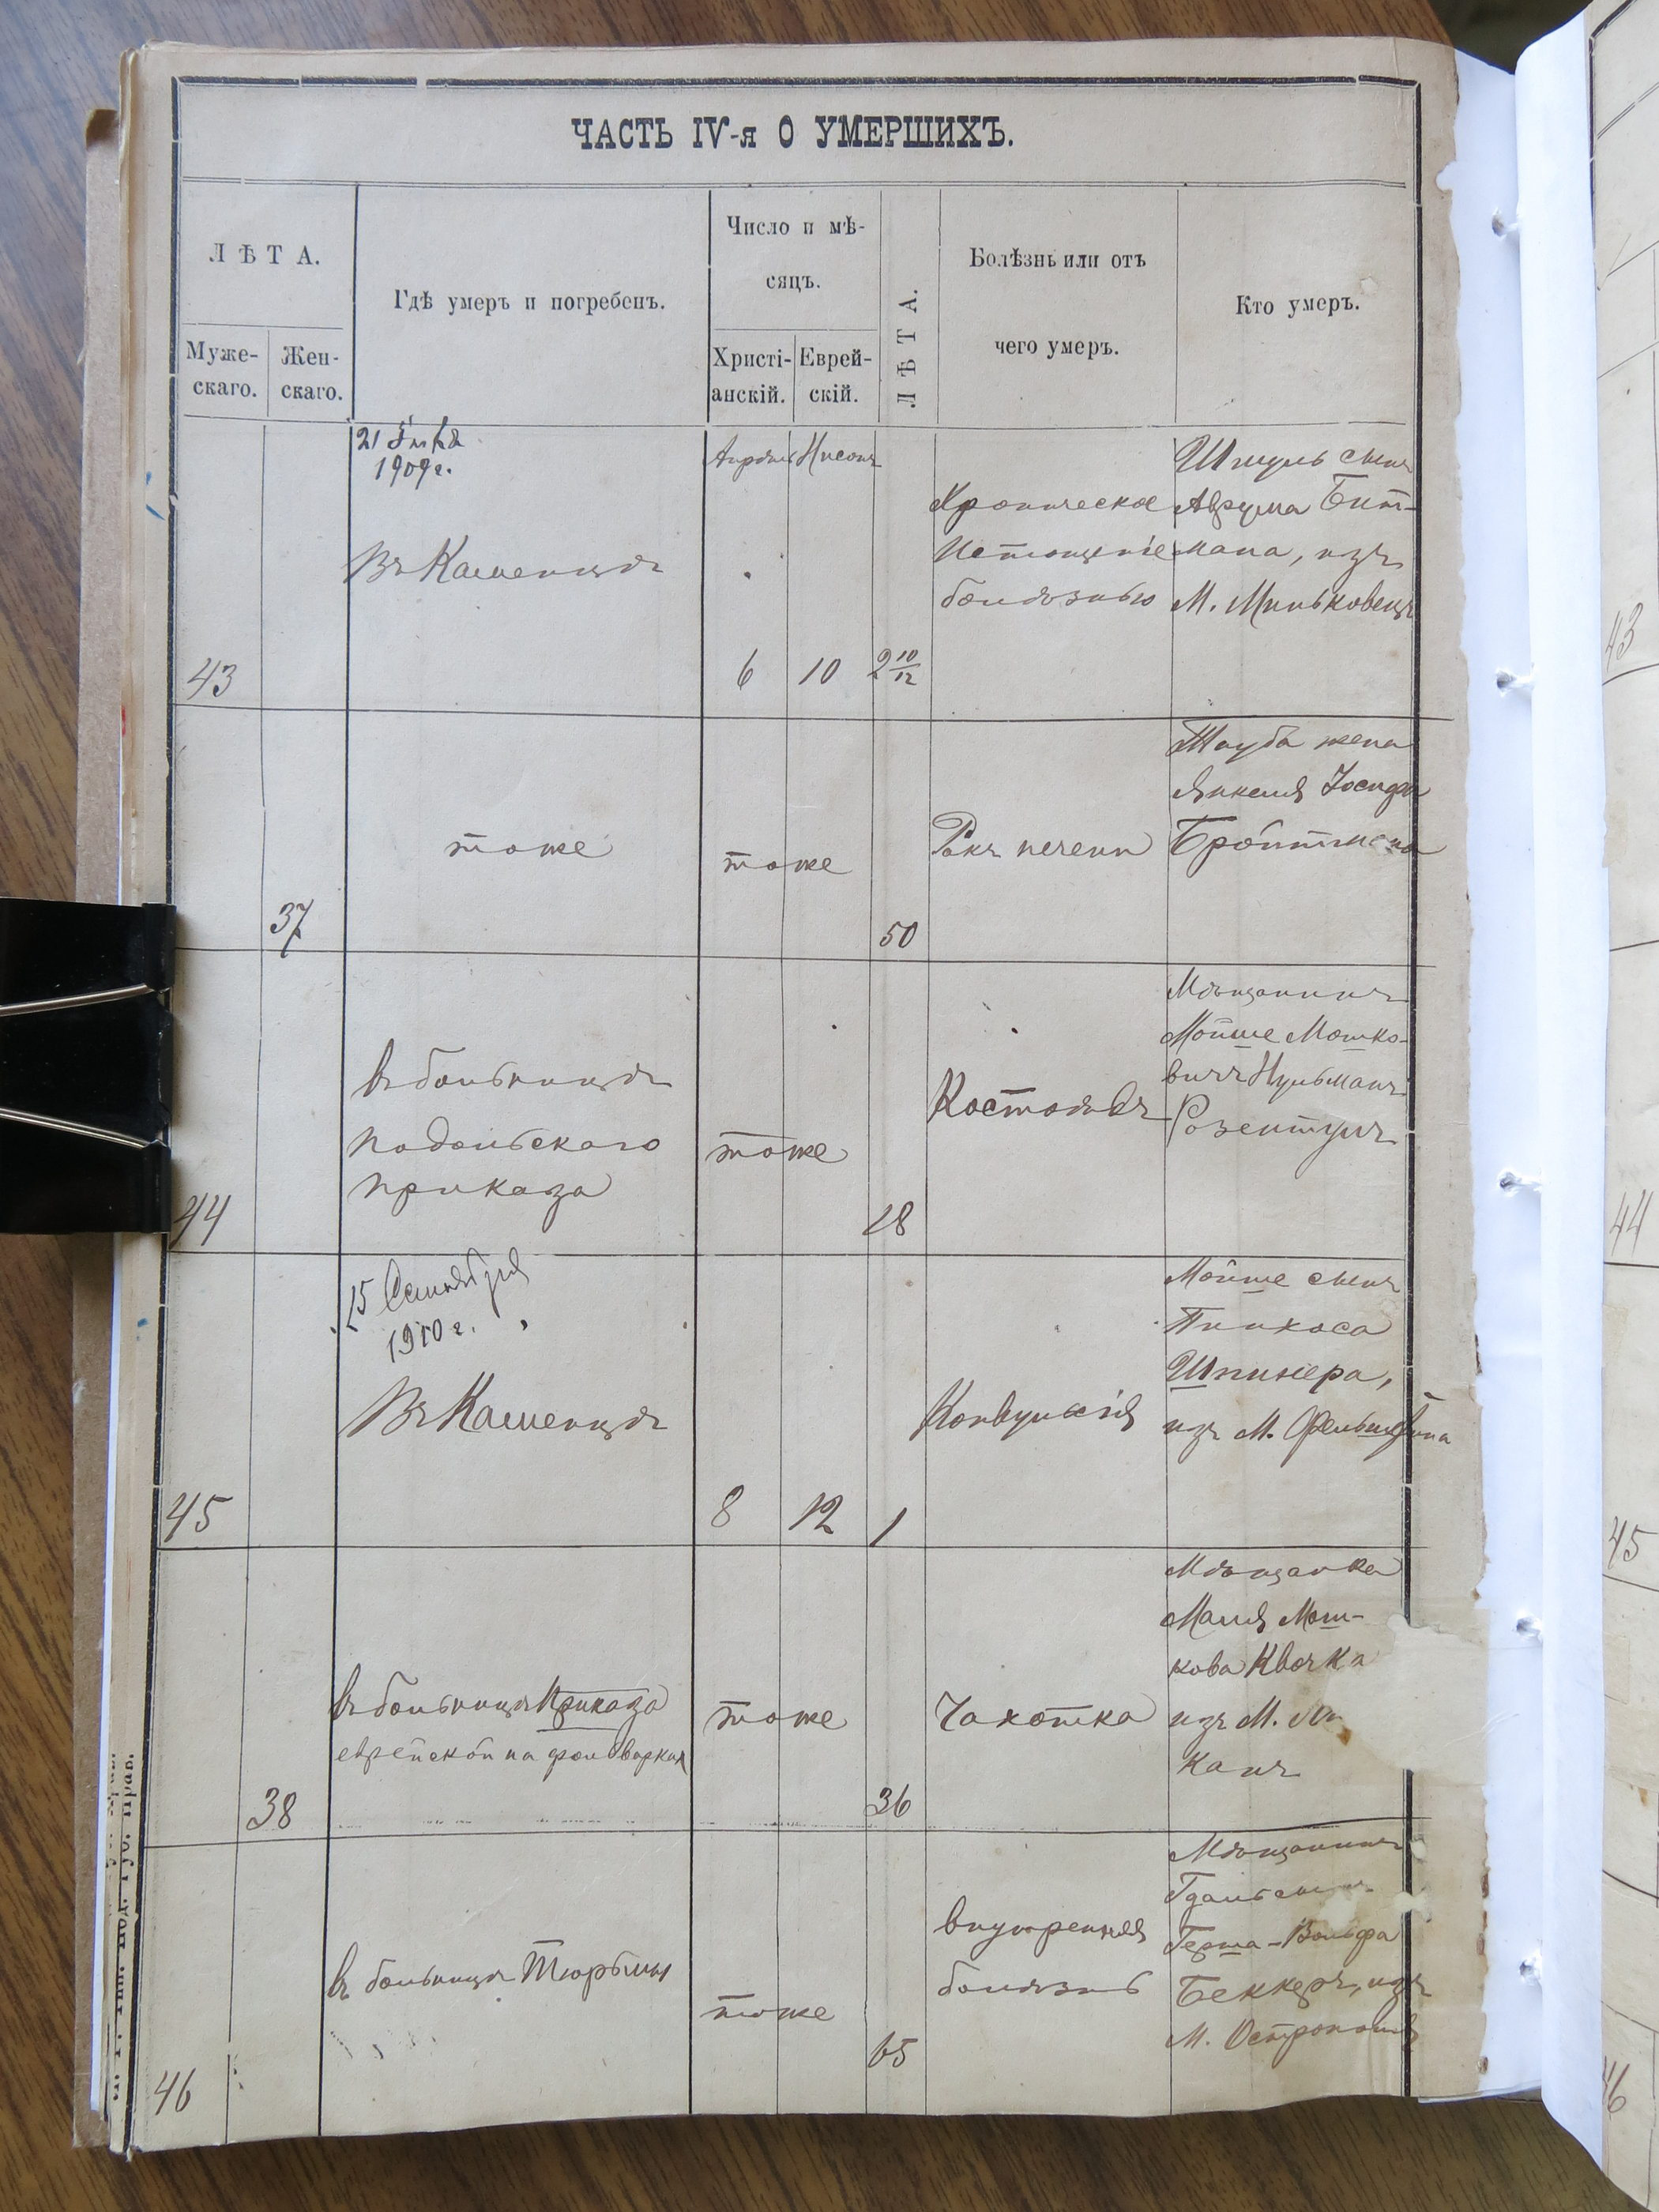 ЧАСТЬ IV-я О УМЕРШИХЪ.
ЛѢТА.
Муже-
скаго.
Жен-
скаго.
Гдѣ умеръ и погребенъ.
Число и мѣ-
сяцъ.
Христі-
анскій.
Еврей-
скій.
ЛѢТА.
Болѣзнь или отъ
чего умеръ.
Кто умеръ.
43
21
1909 г.
Въ Каменцѣ
Апрѣль
Нисонъ
6
10
2 10/12
Хроническое
Истощеніе
болѣзнью
Шмуль сынъ
Аврума Бит-
мана, изъ
М. Миньковецъ
37
тоже
тоже
50
Ракъ печени
Тауба жена
Янкеля Іосифа
Бройтмана
44
въ больницѣ
подольскаго
приказа
тоже
18
Костоѣдъ
Мѣщанинъ
Мойше Мошко-
вичъ Нульманъ
Розентулъ
45
15 Сентября
1910 г.
Въ Каменцѣ
8
12
1
Конвульсія
Мойше сынъ
Пинхоса
Шпинера,
изъ М. Фельштина
38
въ больницѣ Приказа
еврейской на фольваркахъ
тоже
36
Чахотка
Мѣщанка
Маля Мош-
кова Квочка
изъ М.
канъ
46
въ больницѣ Тюрьмы
тоже
65
внутренняя
болѣзнь
Мѣщанинъ
Гдаль сынъ
Герша-Вольфа
Беккеръ, изъ
М. Острополя
43
44
45
46